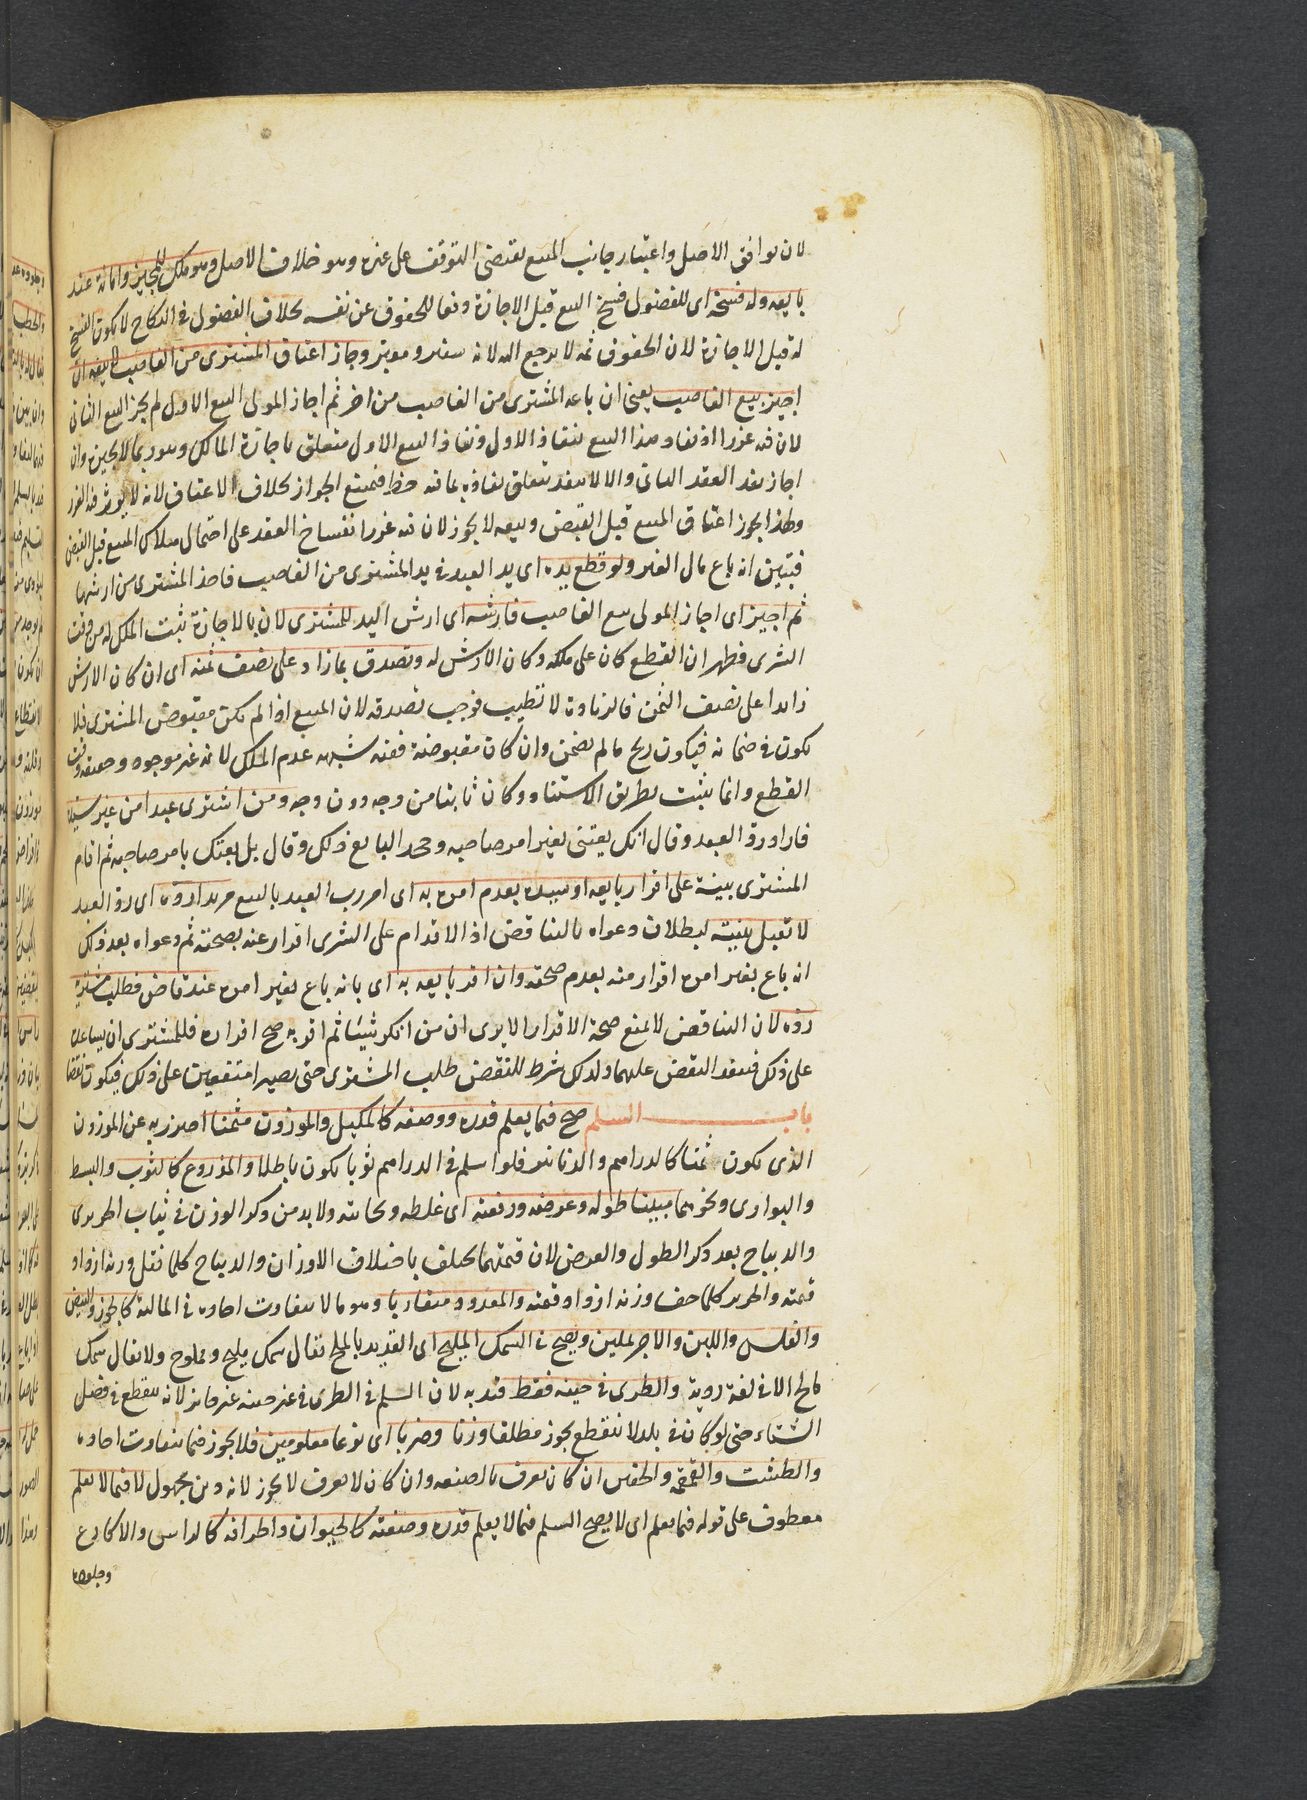 لان توافق الاصل واعتبار جانب المبيع يقتضى التوقف على غيره وهو خلاف الاصل وهو ملك للمجيز وامانة عند
بايعه وله فسخه اى للفضولى فسخ البيع قبل الاجازة دفعا للحقوق عن نفسه بخلاف الفضولى فى النكاح لا يكون الفسخ
له قبل الاجازة لان الحقوق ثمه لا يرجع اليه لانه سفير ومعبر وجاز اعتاق المشترى من الغاصب لا بيعه ان
اجيز بيع الغاصب يعنى ان باعه المشترى من الغاصب من اخر ثم اجاز المولى البيع الاول لم يجز البيع الثانى
لان فيه غررا اذ نفاد هذا البيع بنفاذ الاول ونفاذ البيع الاول متعلق باجازة المالك وهو ربما لا يجيز وان
اجاز نفذ العقد الثانى والا لا ينفذ يتعلق نفاذه بما فيه خطر فيمتنع الجواز بخلاف الاعتاق لانه لا يوثر فيه الغرر
ولهذا يجوز اعتاق المبيع قبل القبض وبيعه لا يجوز لان فيه غرر انفساخ العقد على احتمال هلاك المبيع قبل القبض
فتبين انه باع مال الغير ولو قطع يده اى يد العبد فى يد المشترى من الغاصب فاخذ المشترى من ارشها
ثم اجيز اى اجاز المولى بيع الغاصب فارشه اى ارش اليد للمشترى لان بالاجازة ثبت الملك له من وقت
الشرى فظهر ان القطع كان على ملكه وكان الارش له وتصدق بما زاد على نصف ثمنه اى ان كان الارش
زايدا على نصف الثمن فالزيادة لا تطيب فوجب تصدقه لان المبيع اذا لم يكن مقبوض المشترى فلا
يكون فى ضمانه فيكون ربح ما لم يضمن وان كان مقبوضه ففيه شبهه عدم الملك لانه غير موجود وحقيقة وقت
القطع وانما يثبت بطريق الاستناد وكان ثابتا من وجه دون وجه ومن اشترى عبدا من غير سيده
فاراد رد العبد وقال انك بعتنى بغير امر صاحبه وجحد البايع ذلك وقال بل بعتك بامر صاحبه ثم اقام
المشترى بينة على اقرار بايعه او سيده بعدم امره به اى امر رب العبد بالبيع مريدا رده اى رد العبد
لا تقبل بينته لبطلان دعواه بالتناقض اذ الاقدام على الشرى اقرار عنه بصحته ثم دعواه بعد ذلك
انه باع بغير امره اقرار منه بعدم صحته وان اقر بايعه به اى بانه باع بغير امره عند قاض فطلب مشتريه
رده لان التناقض لا يمنع صحة الاقرار الا يرى ان من انكر شيئا ثم اقر به صح اقراره فللمشترى ان يساعده
على ذلك فينفذ النقض عليهما ولذلك شرط للنقض طلب المشترى حتى يصيرا متفقين على ذلك فيكون نقضا
باب السلم صح فيما يعلم قدره ووصفه كالمكيل والموزون مثمنا احترز به عن الموزون
الذى يكون ثمنا كالدراهم والدنانير فلو اسلم فى الدراهم ثوبا يكون باطلا والمذروع كالثوب والبسط
والبوارى ونحوهما مبينا طوله وعرضه ورقعته اى غلظه وثخانته ولابد من ذكر الوزن فى ثياب الحرير
والديباج بعد ذكر الطول والعرض لان قيمتهما يختلف باختلاف الاوزان والديباج كلما ثقل وزنه ازداد
قيمته والحرير كلما خف وزنه ازداد قيمته والمعدود متقاربا وهو ما لا يتفاوت احاده فى المالية كالجوز والبيض
والفلس واللبن والاجر بملبن ويصح فى السمك المليح اى القديد بالملح يقال سمك مليح ومملوح ولا يقال سمك
مالح الا فى لغة ردية والطرى فى حينه فقط قيد به لان السلم فى الطرى فى غير حينه غير جايز لانه ينقطع فى فصل
الشتاء حتى لو كان فى بلد لا ينقطع يجوز مطلقا وزنا وضربا اى نوعا معلومين فلا يجوز فيما يتفاوت احاده
والطشت والقمقمه والخفين ان كان يعرف بالصنعه وان كان لا يعرف لا يجوز لانه دين مجهول لا فيما لا يعلم
معطوف على قوله فيما يعلم اى لا يصح السلم فيما لا يعلم قدره وصفته كالحيوان واطرافه كالراس والاكارع
وجلوده